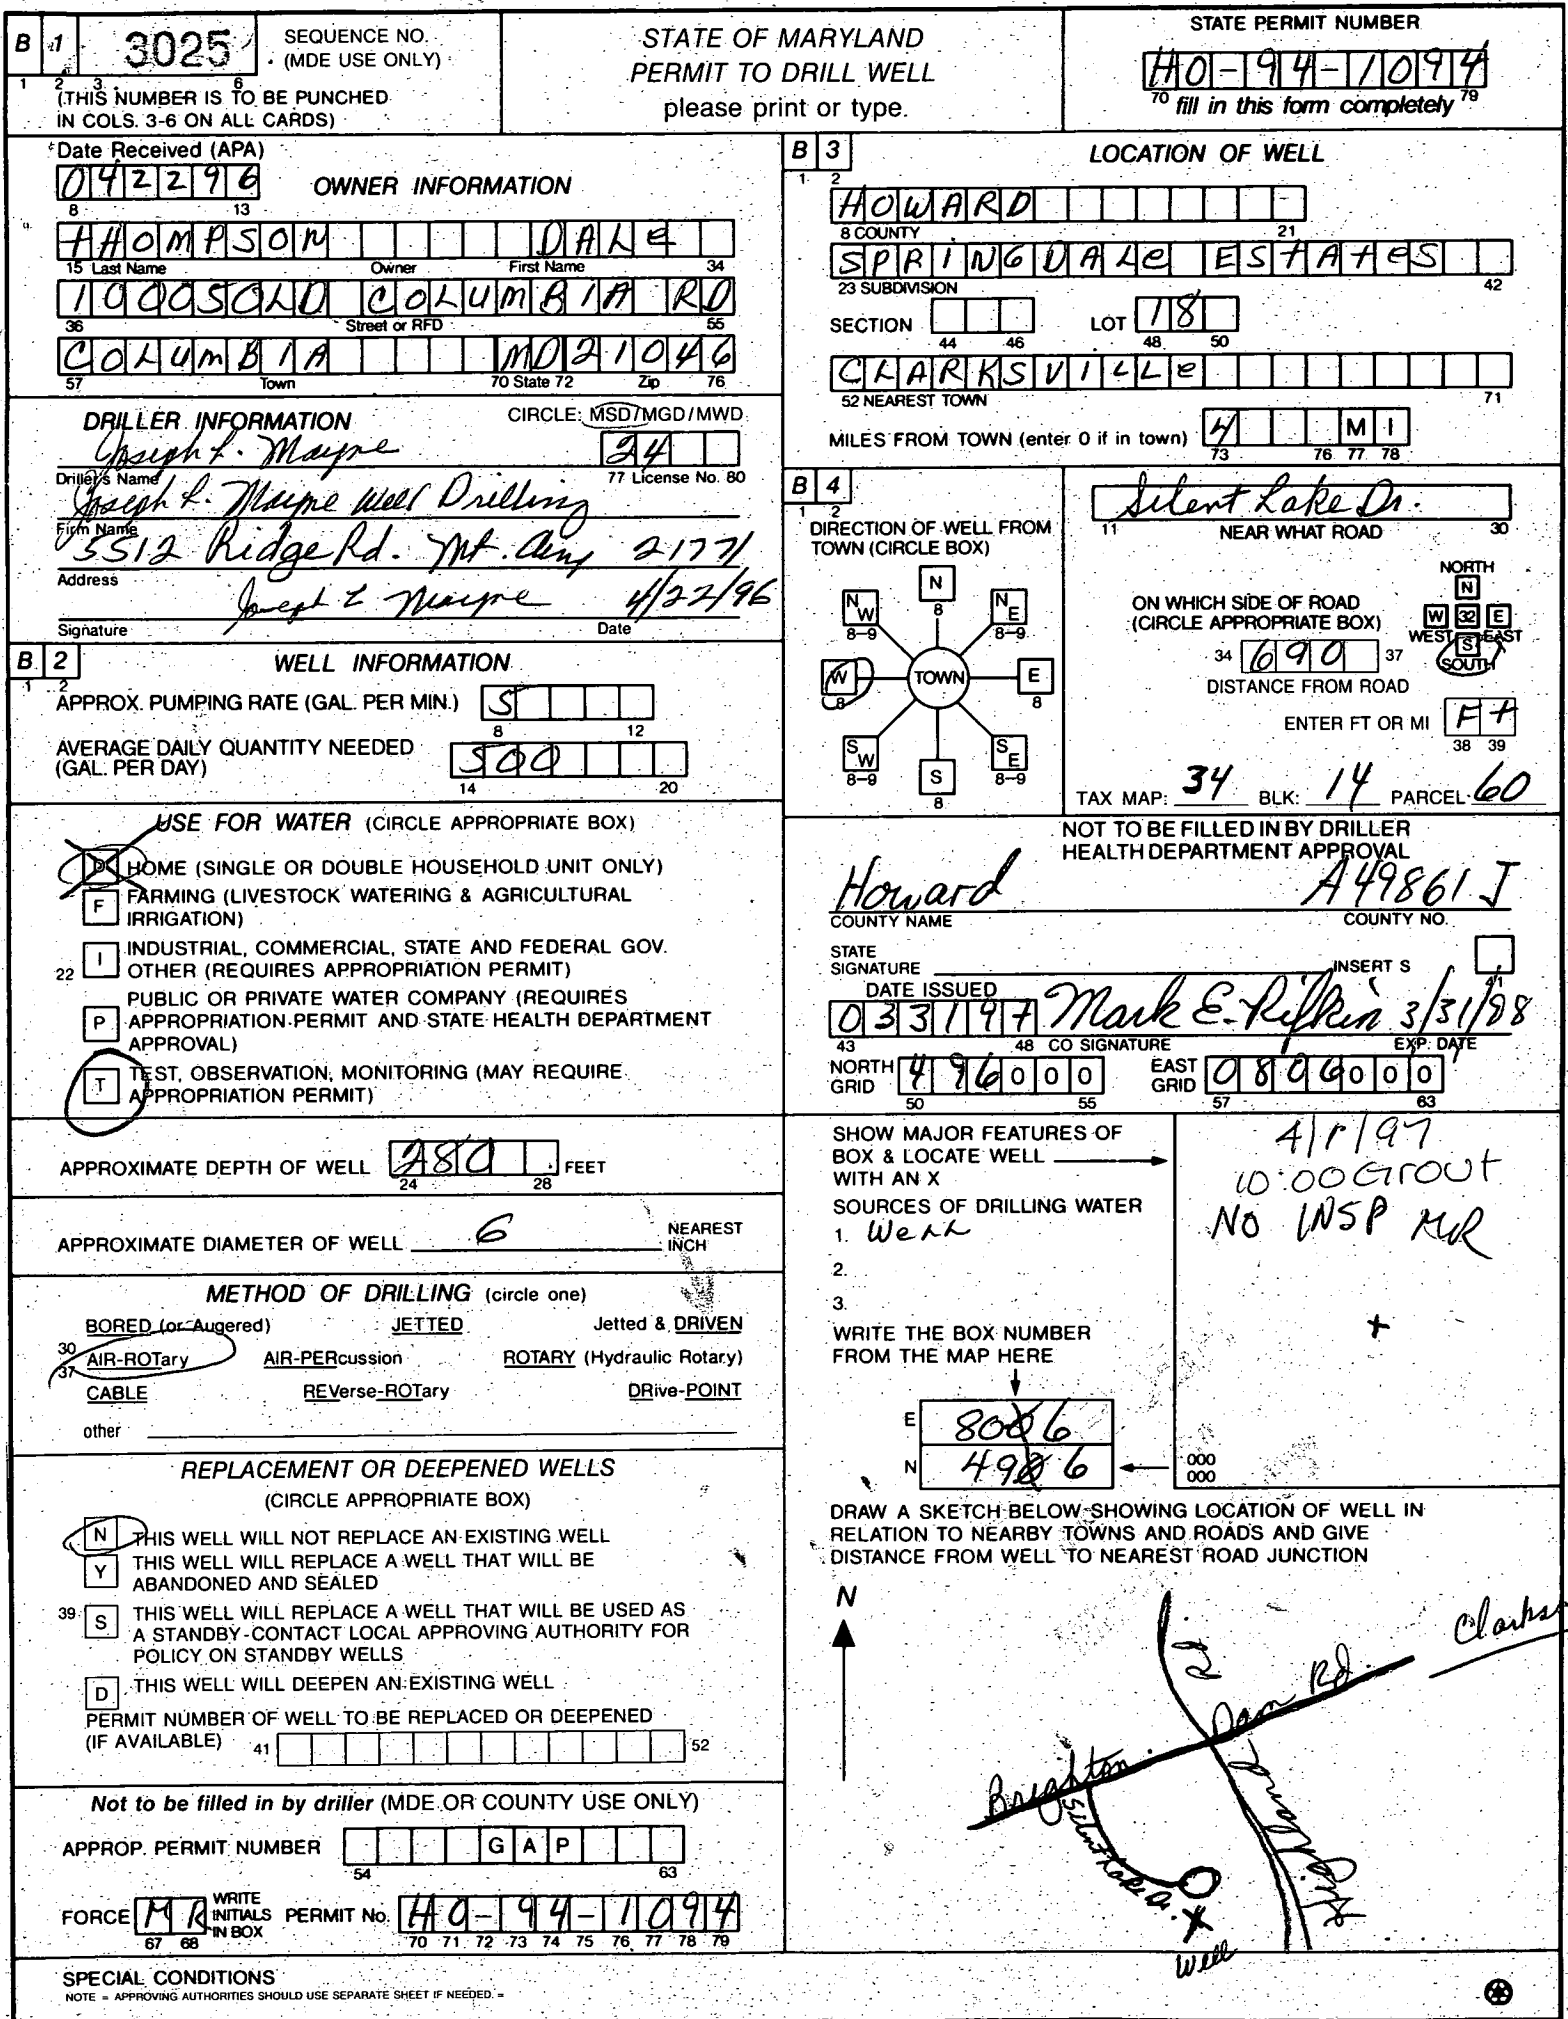 B 1 3025 SEQUENCE NO. (MDE USE ONLY)
1 2 3 6
(THIS NUMBER IS TO BE PUNCHED
IN COLS. 3-6 ON ALL CARDS)
STATE OF MARYLAND
PERMIT TO DRILL WELL
please print or type.
STATE PERMIT NUMBER
HO-94-1094
70 fill in this form completely 79
Date Received (APA)
042296
8 13
OWNER INFORMATION
THOMPSON DALE
15 Last Name Owner First Name 34
10005OLD COLUMBIA RD
36 Street or RFD 55
COLUMBIA MD21046
57 Town 70 State 72 Zip 76
DRILLER INFORMATION CIRCLE: MSD/MGD/MWD
Joseph L. Mayne 24
Driller's Name 77 License No. 80
Joseph L. Mayne Well Drilling
Firm Name
5512 Ridge Rd. Mt. Airy 21771
Address
Joseph L Mayne 4/22/96
Signature Date
B 2 WELL INFORMATION
1 2
APPROX. PUMPING RATE (GAL. PER MIN.) 5
8 12
AVERAGE DAILY QUANTITY NEEDED
(GAL. PER DAY) 500
14 20
USE FOR WATER (CIRCLE APPROPRIATE BOX)
D HOME (SINGLE OR DOUBLE HOUSEHOLD UNIT ONLY)
F FARMING (LIVESTOCK WATERING & AGRICULTURAL
IRRIGATION)
22 I INDUSTRIAL, COMMERCIAL, STATE AND FEDERAL GOV.
OTHER (REQUIRES APPROPRIATION PERMIT)
P PUBLIC OR PRIVATE WATER COMPANY (REQUIRES
APPROPRIATION PERMIT AND STATE HEALTH DEPARTMENT
APPROVAL)
T TEST, OBSERVATION, MONITORING (MAY REQUIRE
APPROPRIATION PERMIT)
APPROXIMATE DEPTH OF WELL 280 FEET
24 28
APPROXIMATE DIAMETER OF WELL 6 NEAREST
INCH
METHOD OF DRILLING (circle one)
BORED (or Augered) JETTED Jetted & DRIVEN
30
AIR-ROTary AIR-PERcussion ROTARY (Hydraulic Rotary)
37
CABLE REVerse-ROTary DRive-POINT
other
REPLACEMENT OR DEEPENED WELLS
(CIRCLE APPROPRIATE BOX)
N THIS WELL WILL NOT REPLACE AN EXISTING WELL
Y THIS WELL WILL REPLACE A WELL THAT WILL BE
ABANDONED AND SEALED
39 S THIS WELL WILL REPLACE A WELL THAT WILL BE USED AS
A STANDBY-CONTACT LOCAL APPROVING AUTHORITY FOR
POLICY ON STANDBY WELLS
D THIS WELL WILL DEEPEN AN EXISTING WELL
PERMIT NUMBER OF WELL TO BE REPLACED OR DEEPENED
(IF AVAILABLE) 41 52
Not to be filled in by driller (MDE OR COUNTY USE ONLY)
APPROP. PERMIT NUMBER G A P
54 63
FORCE MR WRITE INITIALS IN BOX PERMIT No. HO-94-1094
67 68 70 71 72 73 74 75 76 77 78 79
SPECIAL CONDITIONS
NOTE = APPROVING AUTHORITIES SHOULD USE SEPARATE SHEET IF NEEDED. =
B 3 LOCATION OF WELL
1 2
HOWARD
8 COUNTY 21
SPRINGDALE ESTATES
23 SUBDIVISION 42
SECTION LOT 18
44 46 48 50
CLARKSVILLE
52 NEAREST TOWN 71
MILES FROM TOWN (enter 0 if in town) 4 M I
73 76 77 78
B 4
1 2
DIRECTION OF WELL FROM
TOWN (CIRCLE BOX)
N
8
NW NE
8-9 8-9
W TOWN E
8 8
SW SE
8-9 8-9
S
8
Silent Lake Dr.
11 NEAR WHAT ROAD 30
ON WHICH SIDE OF ROAD
(CIRCLE APPROPRIATE BOX)
NORTH
N
W 32 E
WEST EAST
S
SOUTH
34 690 37
DISTANCE FROM ROAD
ENTER FT OR MI Ft
38 39
TAX MAP: 34 BLK: 14 PARCEL 60
NOT TO BE FILLED IN BY DRILLER
HEALTH DEPARTMENT APPROVAL
Howard A49861 J
COUNTY NAME COUNTY NO.
STATE
SIGNATURE INSERT S
41
DATE ISSUED
033197 Mark E. Rifkin 3/31/98
43 48 CO SIGNATURE EXP. DATE
NORTH
GRID 496000
50 55
EAST
GRID 0806000
57 63
SHOW MAJOR FEATURES OF
BOX & LOCATE WELL
WITH AN X
SOURCES OF DRILLING WATER
1. Well
2.
3.
WRITE THE BOX NUMBER
FROM THE MAP HERE
E 8006
N 496
000
000
4/1/97
10:00 Grout
NO INSP MR
+
DRAW A SKETCH BELOW SHOWING LOCATION OF WELL IN
RELATION TO NEARBY TOWNS AND ROADS AND GIVE
DISTANCE FROM WELL TO NEAREST ROAD JUNCTION
N
Clarks
Rd.
Brighton Dam Rd.
Highland
Silent Lake Dr.
X
Well